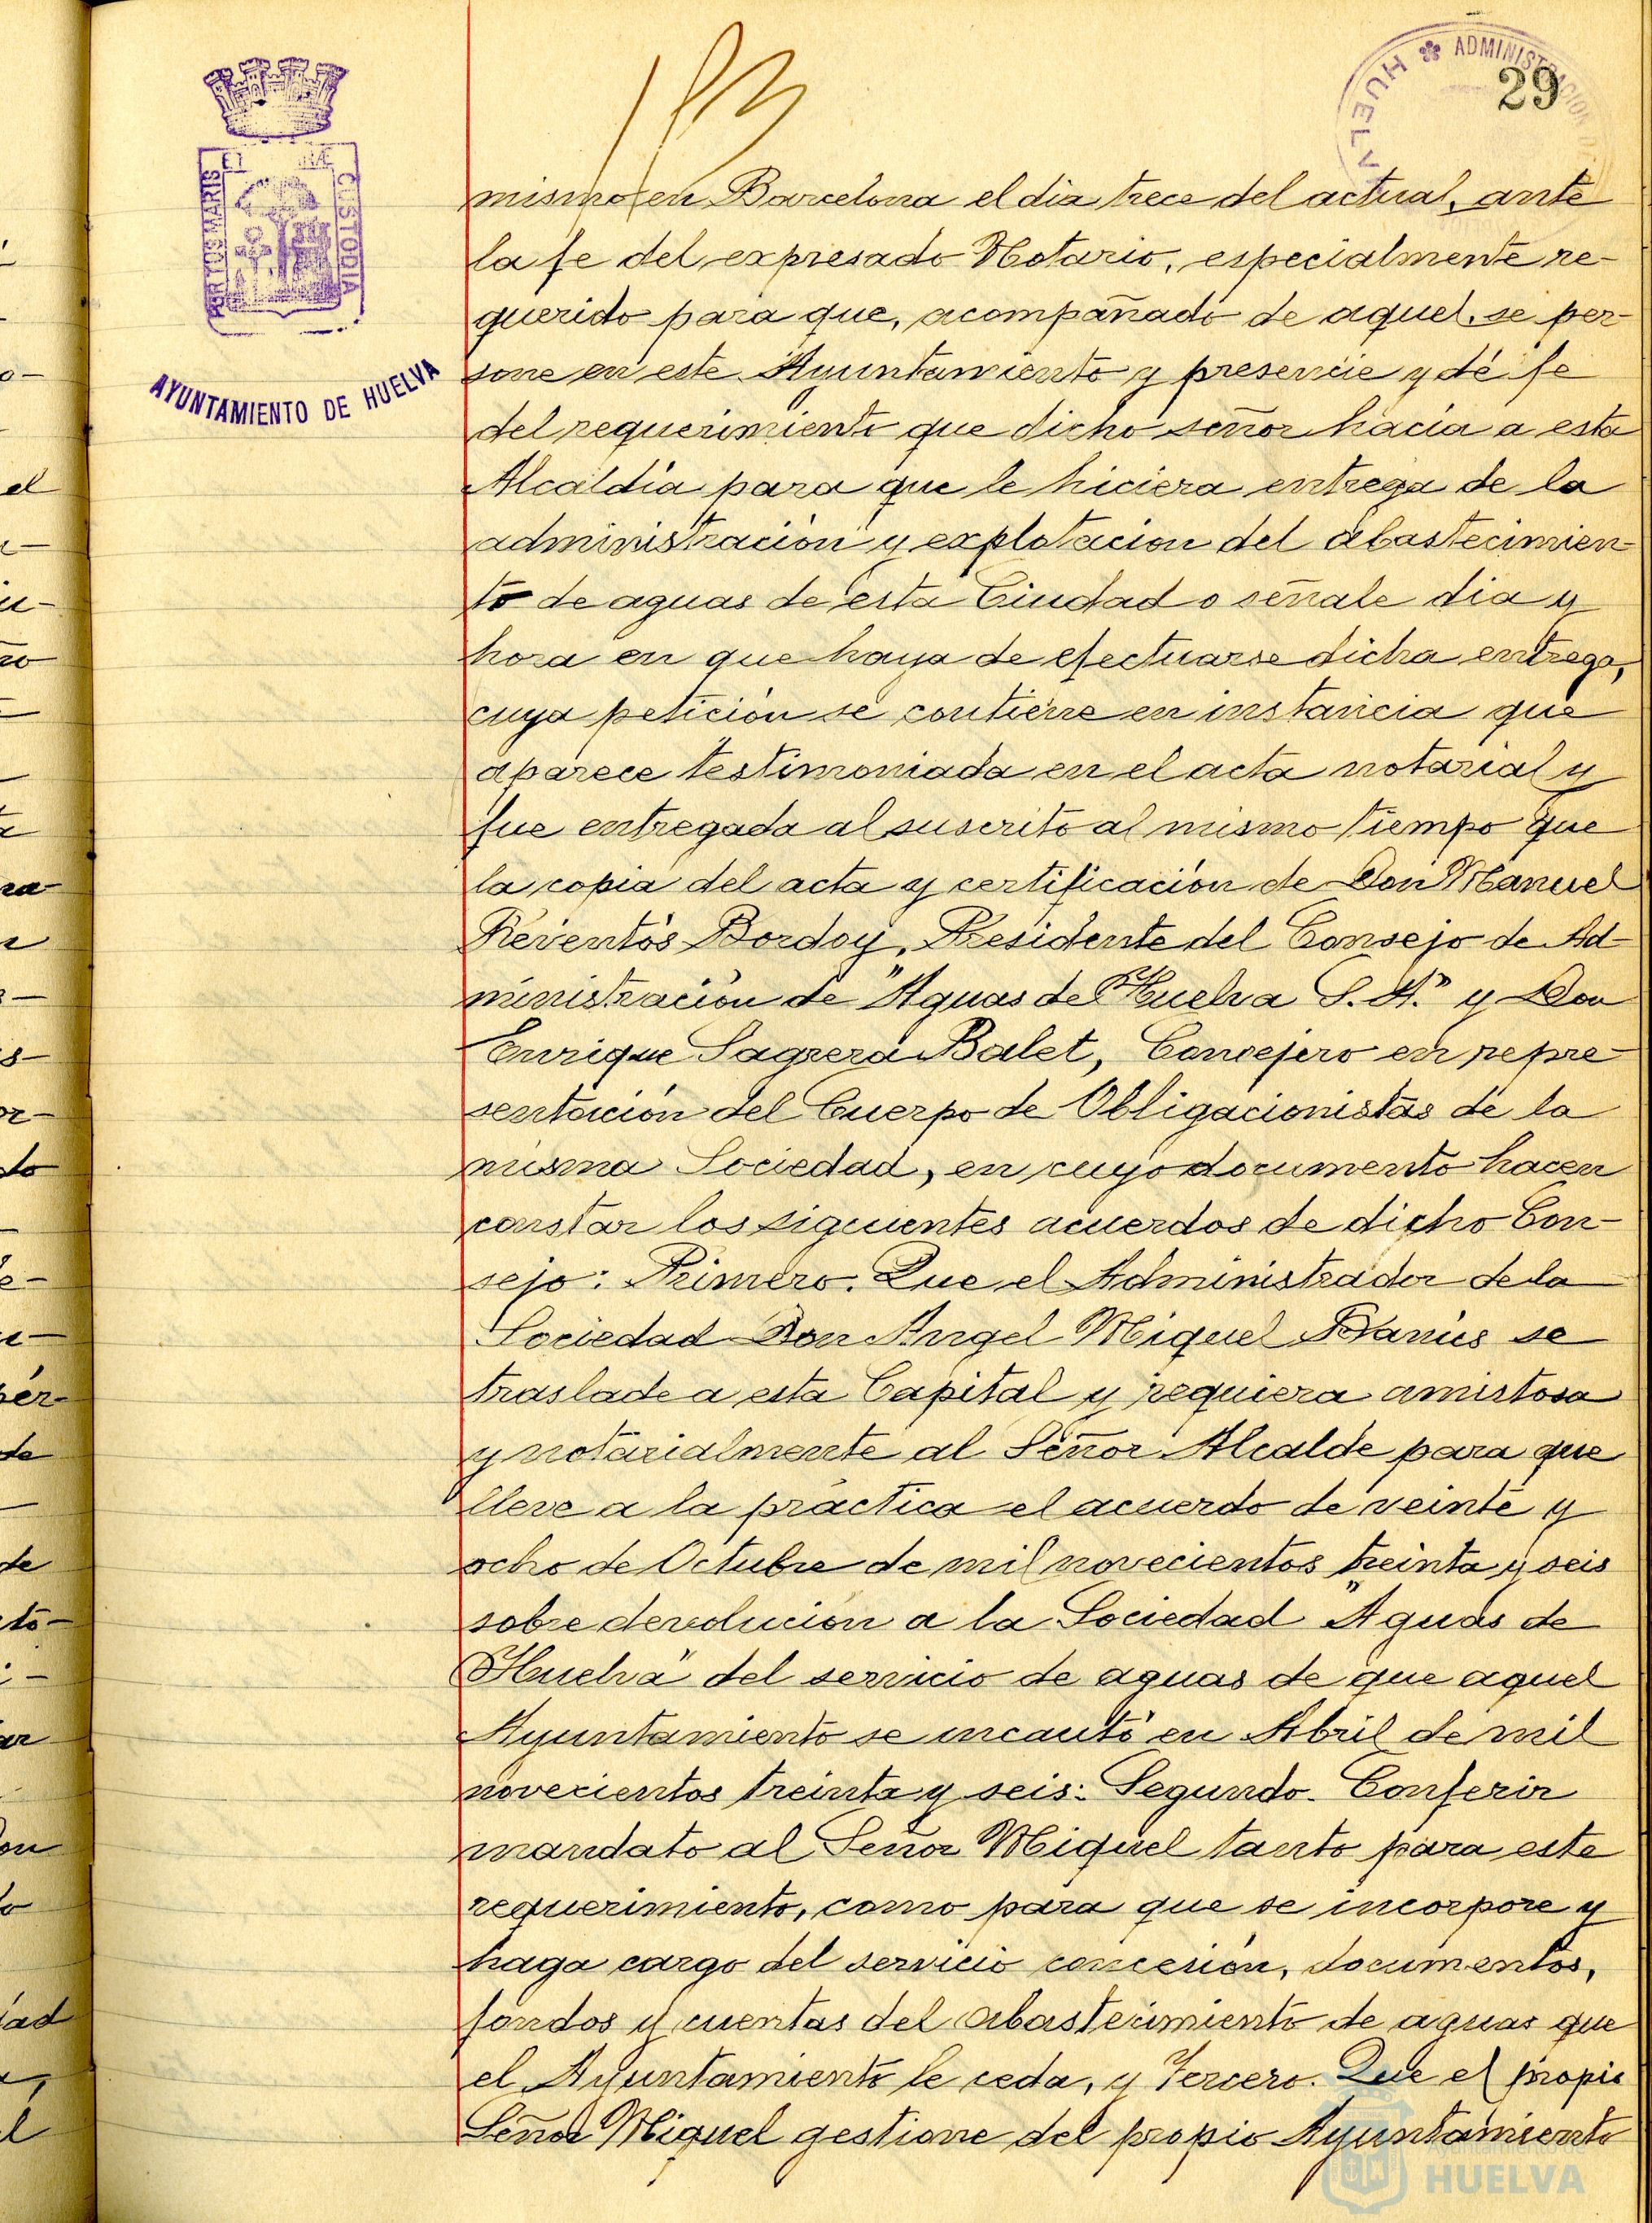 29
HUELVA ✽ ADMINISTRACION
PORTUS MARIS ET TERRÆ CUSTODIA
AYUNTAMIENTO DE HUELVA
mismo en Barcelona el dia trece del actual, ante
la fe del expresado Notario, especialmente re-
querido para que, acompañado de aquel, se per-
sone en este Ayuntamiento y presencie y dé fe
del requerimiento que dicho señor hacia a esta
Alcaldía para que le hiciera entrega de la
administración y explotacion del abastecimien-
to de aguas de esta Ciudad o señale dia y
hora en que haya de efectuarse dicha entrega,
cuya petición se contiene en instancia que
aparece testimoniada en el acta notarial y
fue entregada al suscrito al mismo tiempo que
la copia del acta y certificación de Don Manuel
Reventós Bordoy, Presidente del Consejo de Ad-
ministración de "Aguas de Huelva S. A." y Don
Enrique Sagrera Balet, Consejero en repre-
sentación del Cuerpo de Obligacionistas de la
misma Sociedad, en cuyo documento hacen
constar los siguientes acuerdos de dicho Con-
sejo: Primero. Que el Administrador de la
Sociedad Don Angel Miquel Banús se
traslade a esta Capital y requiera amistosa
y notarialmente al Señor Alcalde para que
lleve a la práctica el acuerdo de veinte y
ocho de Octubre de mil novecientos treinta y seis
sobre devolución a la Sociedad "Aguas de
Huelva" del servicio de aguas de que aquel
Ayuntamiento se incautó en Abril de mil
novecientos treinta y seis: Segundo. Conferir
mandato al Señor Miquel tanto para este
requerimiento, como para que se incorpore y
haga cargo del servicio concesión, documentos,
fondos y cuentas del abastecimiento de aguas que
el Ayuntamiento le ceda, y Tercero. Que el propio
Señor Miquel gestione del propio Ayuntamiento
HUELVA